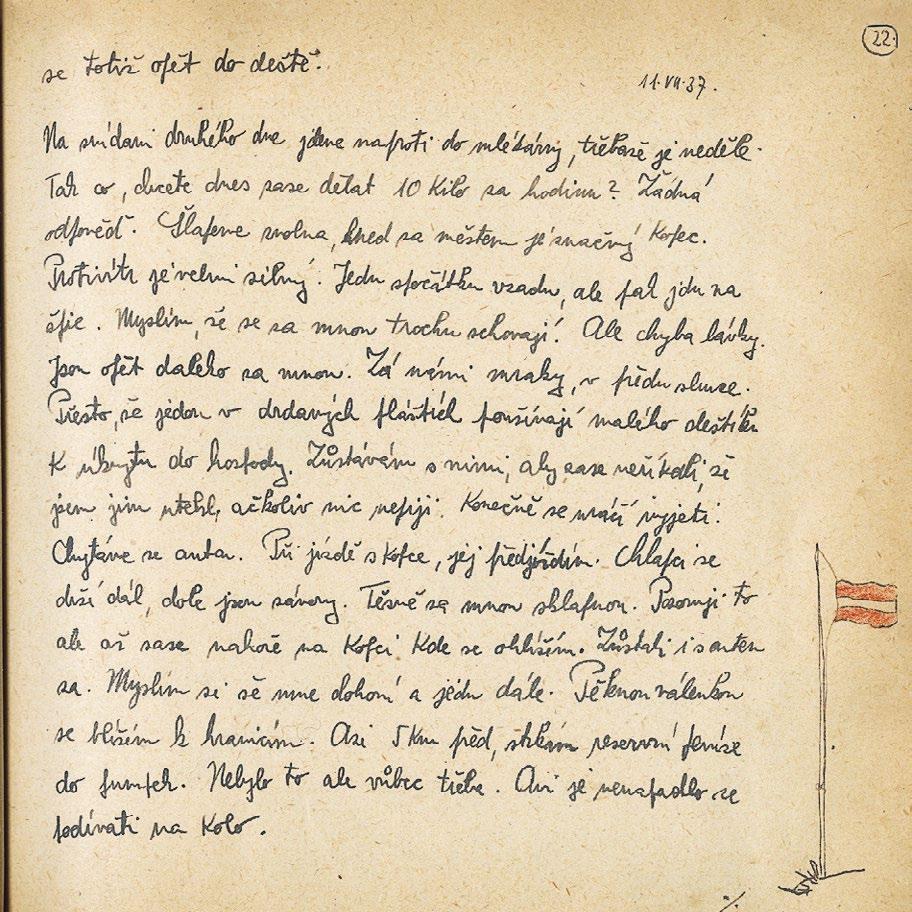 22.
se totiž opět do deště.
11.VII.37.
Na snídani druhého dne jdeme naproti do mlékárny, třebaže je neděle.
Tak co, chcete dnes zase dělat 10 Kilo za hodinu? Žádná
odpověď. Šlapeme zvolna, hned za městem je značný Kopec.
Protivítr je velmi silný. Jedu zpočátku vzadu, ale pak jdu na
špic. Myslím, že se za mnou trochu schovají. Ale chyba lávky.
Jsou opět daleko za mnou. Za námi mraky, v předu slunce.
Přesto, že jedou v dravých pláštích používají malého deštíku
K úkrytu do hospody. Zůstávám s nimi, aby zase neříkali, že
jsem jim utekl, ačkoliv nic nepiji. Konečně se ráčí vyjeti.
Chytáme se auta. Při jízdě s Kopce, jej předjíždím. Chlapci se
drží dál, dole jsou závory. Těsně za mnou sklapnou. Pozoruji to
ale až zase nahoře na Kopci Kde se ohlížím. Zůstali i s autem
za. Myslím si že mne dohoní a jedu dále. Pěknou válenkou
se blížím k hranicím. Asi 5 km před, strkám reservní peníze
do pumpek. Nebylo to ale vůbec třeba. Ani je nenapadlo se
podívati na Kolo.
./.